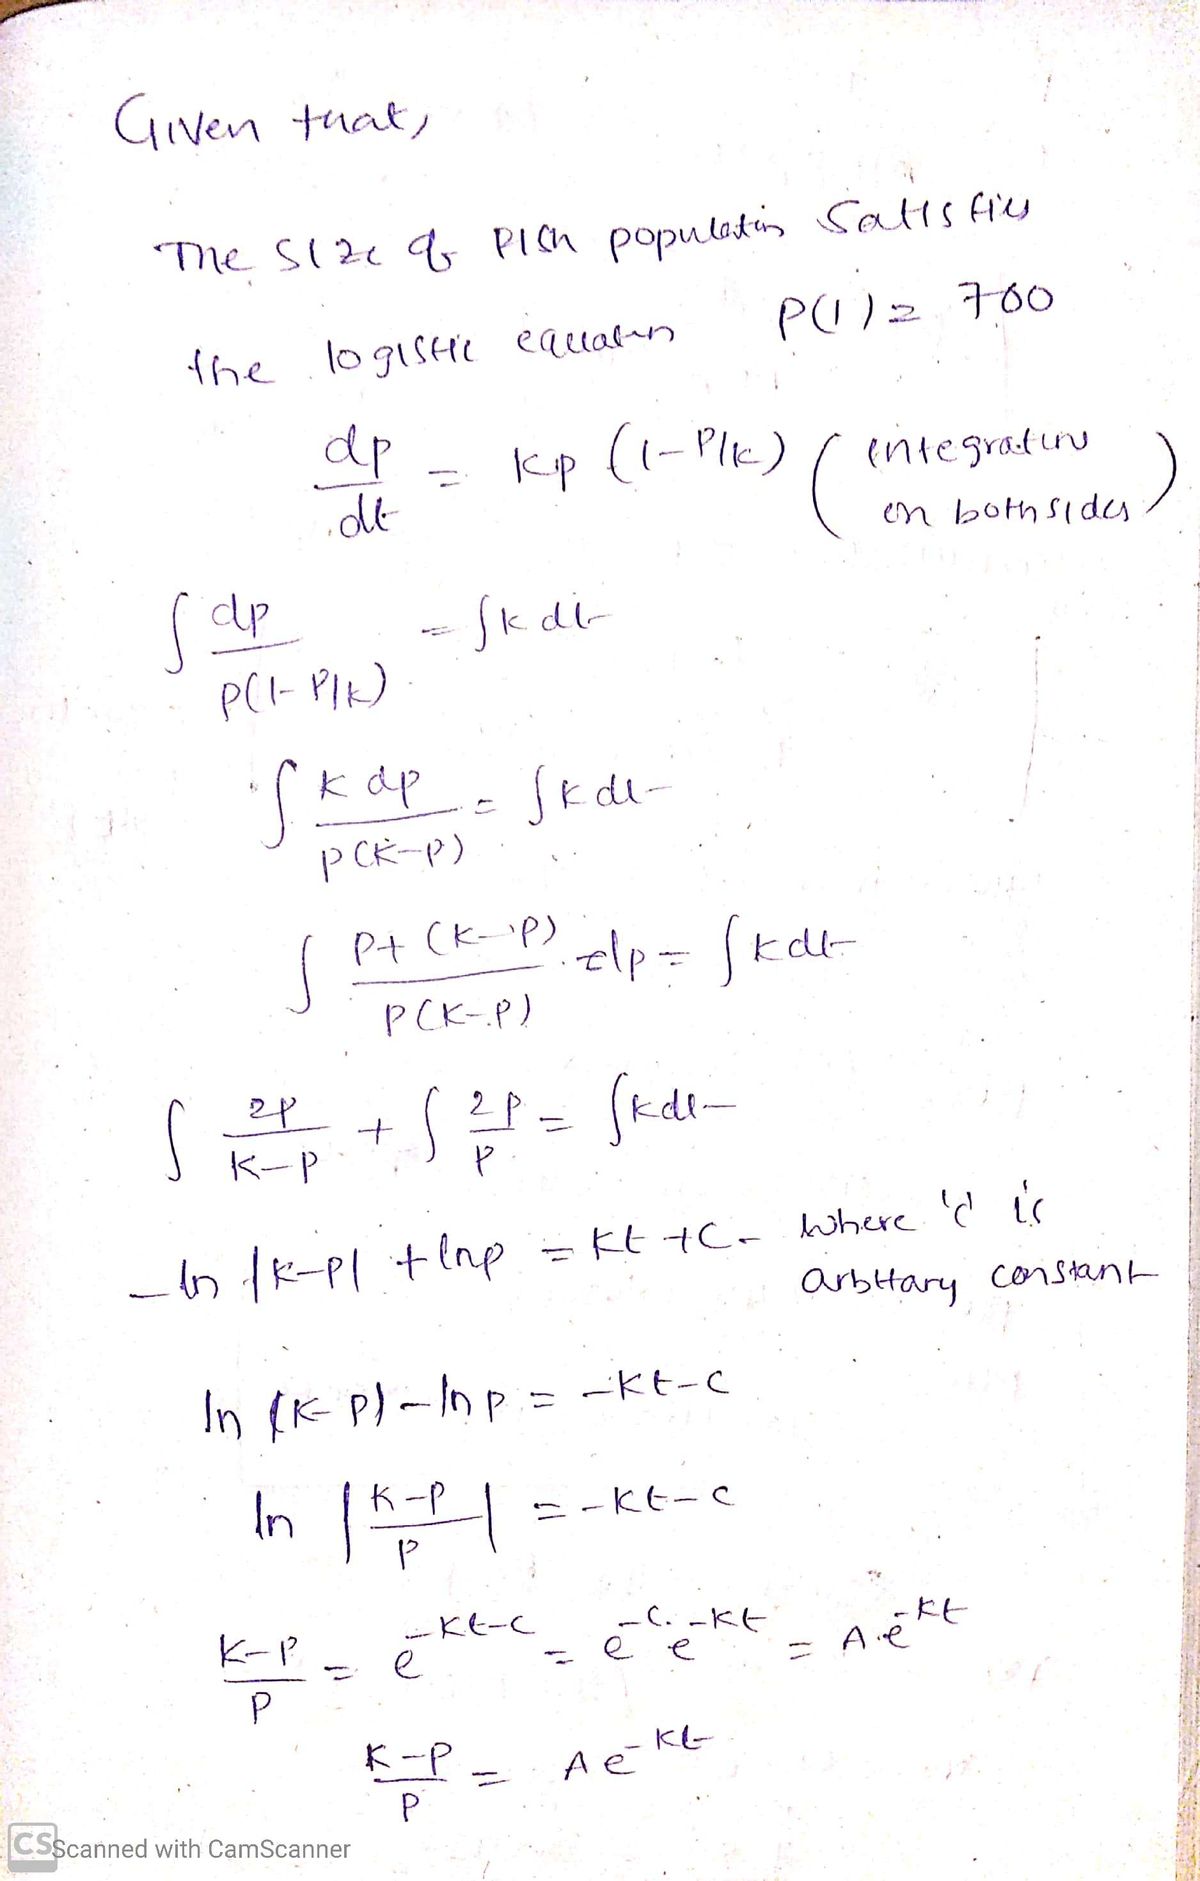 Given that,
The size of Pish population satisfies
the logistic equation P(1) = 700
dp/dt = kp (1-P/k) (integrating on both sides)
∫ dp/P(1-P/k) = ∫k dt
∫ k dp/p(k-p) = ∫k dt
∫ P+(k-P)/P(k-P) dp = ∫k dt
∫ 2p/k-p + ∫ 2p/p = ∫k dt
-ln |k-p| + lnp = kt + c - where 'c' is
arbitary constant
ln (k-p) - ln p = -kt-c
ln |k-p/p| = -kt-c
k-p/p = e^-kt-c = e^-c . e^-kt = A.e^-kt
k-p/p = Ae^-kt
CS Scanned with CamScanner